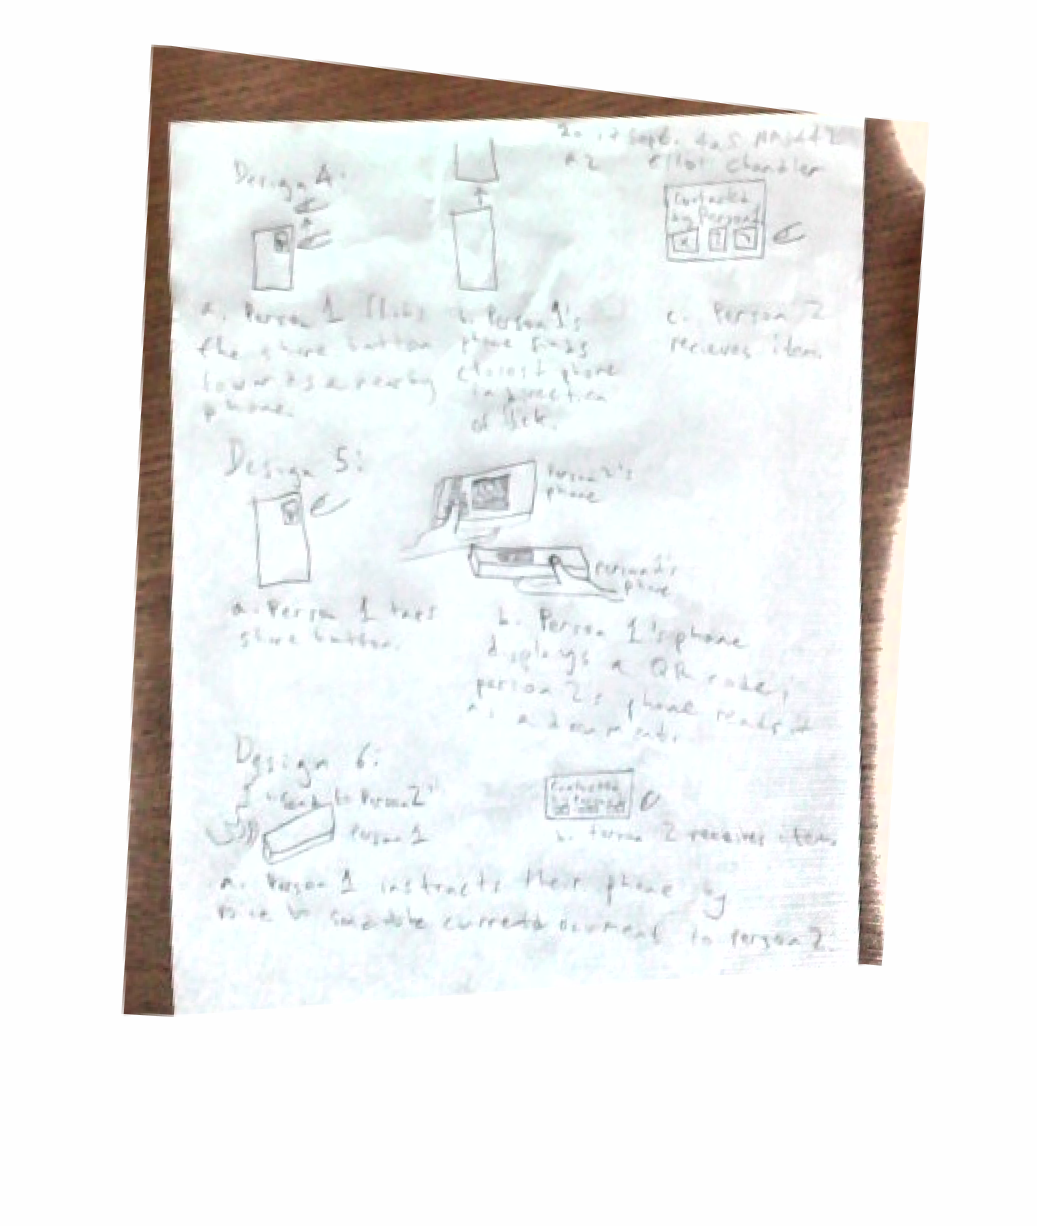 Sept.
a2 Elliot Chandler
Design 4:
Contacted
by Person 1
a. Person 1 flicks
the share button
towards a nearby
phone.
b. Person 1's
phone finds
closest phone
in direction
of flick.
c. Person 2
recieves item.
Design 5:
Person 2's
phone
Person 1's
phone
a. Person 1 taps
share button.
b. Person 1's phone
displays a QR code;
person 2's phone reads it
as a document.
Design 6:
"Send to Person 2"
Person 1
Contacted
b. Person 2 receives item.
a. Person 1 instructs their phone by
voice to send the current document to Person 2.